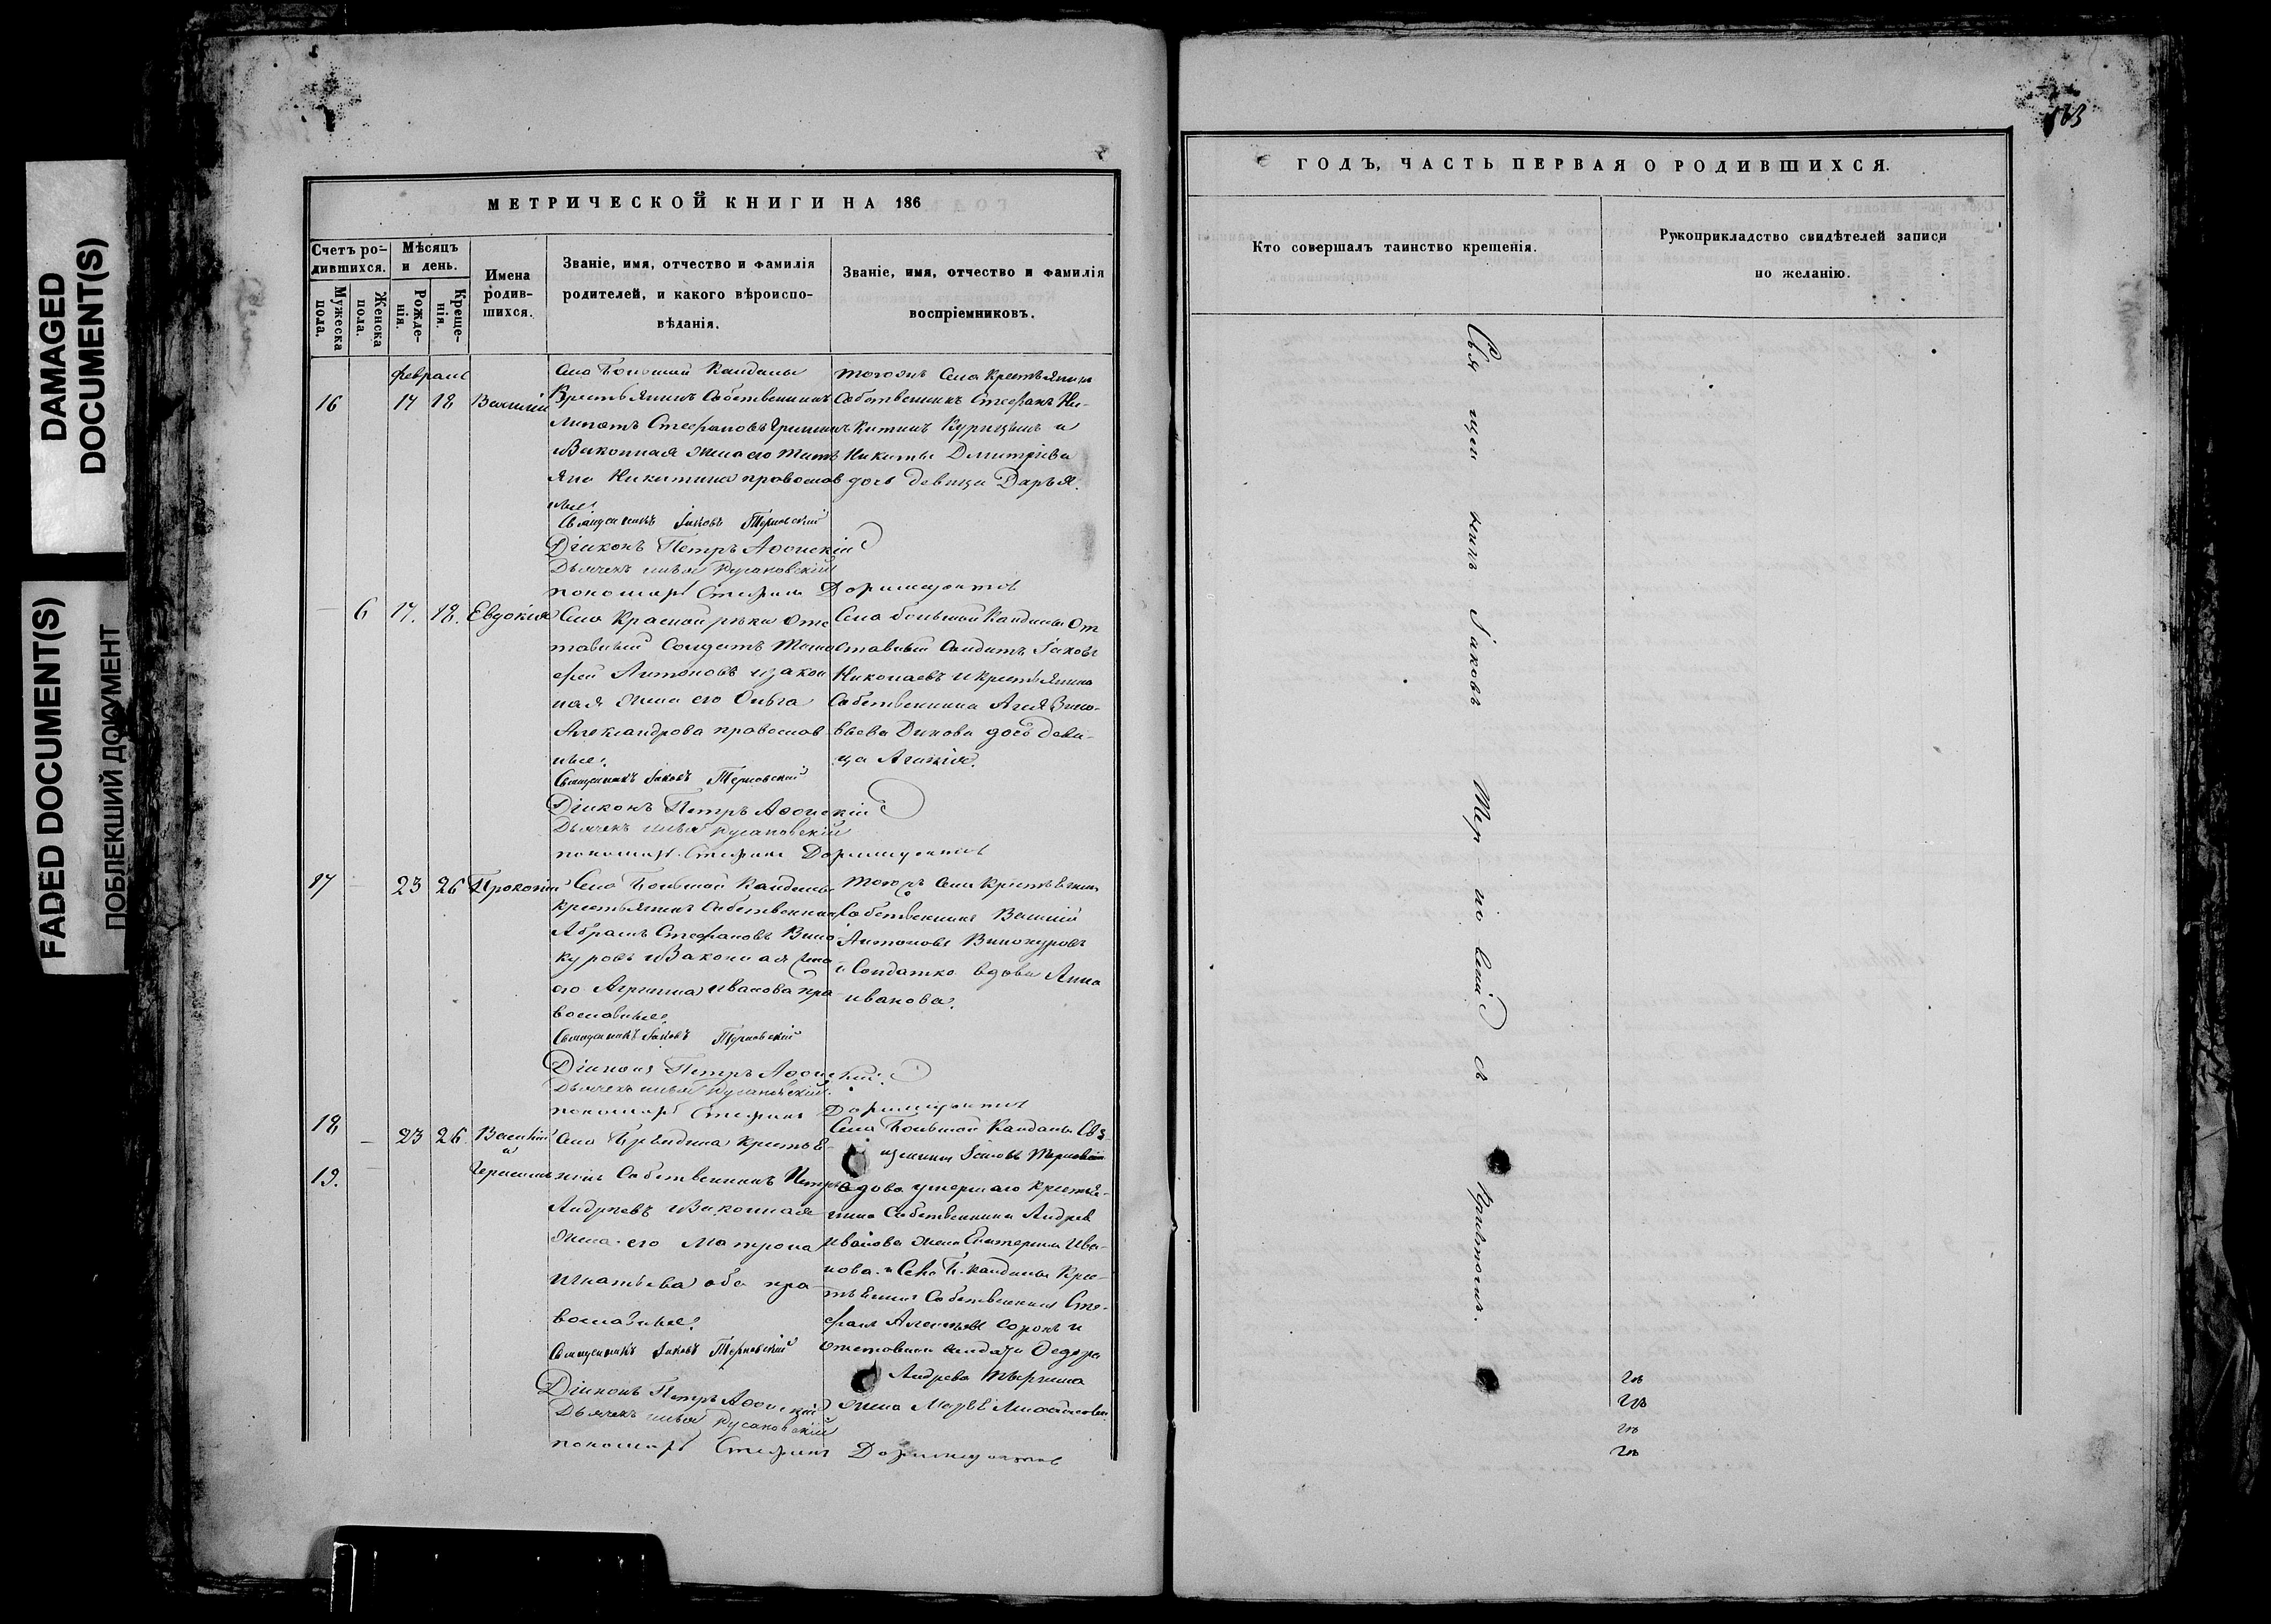 DAMAGED
DOCUMENT(S)
FADED DOCUMENT(S)
ПОБЛЕКШИЙ ДОКУМЕНТ
МЕТРИЧЕСКОЙ КНИГИ НА 186
Счетъ ро-
дившихся.
Мужеска
пола.
Женска
пола.
Мѣсяцъ
и день.
Рожде-
нія.
Креще-
нія.
Имена
родив-
шихся.
Званіе, имя, отчество и фамилія
родителей, и какого вѣроиспо-
вѣданія.
Званіе, имя, отчество и фамилія
воспріемниковъ.
февраль
16 17 18 Василій
Село Большой Кандалы
Крестьянинъ Собственникъ
Стефановъ
Законная жена его
Никитина православ
ные.
Священникъ Іаковъ Терновскій
Діаконъ Петръ Афонскій
Дьячекъ Илья Русановскій
пономарь Стефанъ Доримедонтов
тогожъ Села Крестьянинъ
Собственникъ Стефанъ Ни-
китинъ Курицынъ и
Никиты Дмитріева
дочь девица Дарья.
— 6 17. 18. Евдокія
Село Красной реки От
тавный Солдатъ Тимо
фей Антоновъ и закон
ная жена его Ольга
Александрова православ
ные.
Священникъ Іаковъ Терновскій
Діаконъ Петръ Афонскій
Дьячекъ Илья Русановскій
пономарь Стефанъ Доримедонтов
Села большой Кандалы От
ставный Солдатъ Іаковъ
Николаевъ и крестьянина
Собственника
дочь деви-
ца
17 — 23 26 Прокопій
Село Большой Кандалы
Крестьянинъ Собственникъ
Абрамъ Стефановъ Вино
куровъ и Законная жена
его Агрипина Иванова пра
вославные.
Священникъ Іаковъ Терновскій
Діаконъ Петръ Афонскій.
Дьячекъ Илья Русановскій
пономарь Стефанъ Доримедонтов
Тогожъ Села Крестьянинъ
Собственникъ Василій
Антоновъ Винокуровъ
и Солдатка вдова Анна
Иванова.
18 — 23 26. Василій
и
19. Герасимъ
Село крестья-
нинъ Собственникъ Петръ
Андреевъ и Законная
жена его Матрона
Игнатьева оба пра
вославные.
Священникъ Іаковъ Терновскій
Діаконъ Петръ Афонскій
Дьячекъ Илья Русановскій
пономарь Стефанъ Доримедонтов
Села Большой Кандалы Свя-
щенникъ Іаковъ Терновскій
вдова умершаго крестья-
нина Собственника Андрея
Иванова жена Екатерина Ива-
нова. и Села Б. Кандалы Кре-
стьянинъ Собственникъ Сте-
фанъ Сорокъ и
Солдата Федора
Андреева
жена Марья
ГОДЪ, ЧАСТЬ ПЕРВАЯ О РОДИВШИХСЯ.
Кто совершалъ таинство крещенія.
Рукоприкладство свидѣтелей записи
по желанію.
Свя щен никъ Іаковъ Тер но вскій съ Причтомъ.